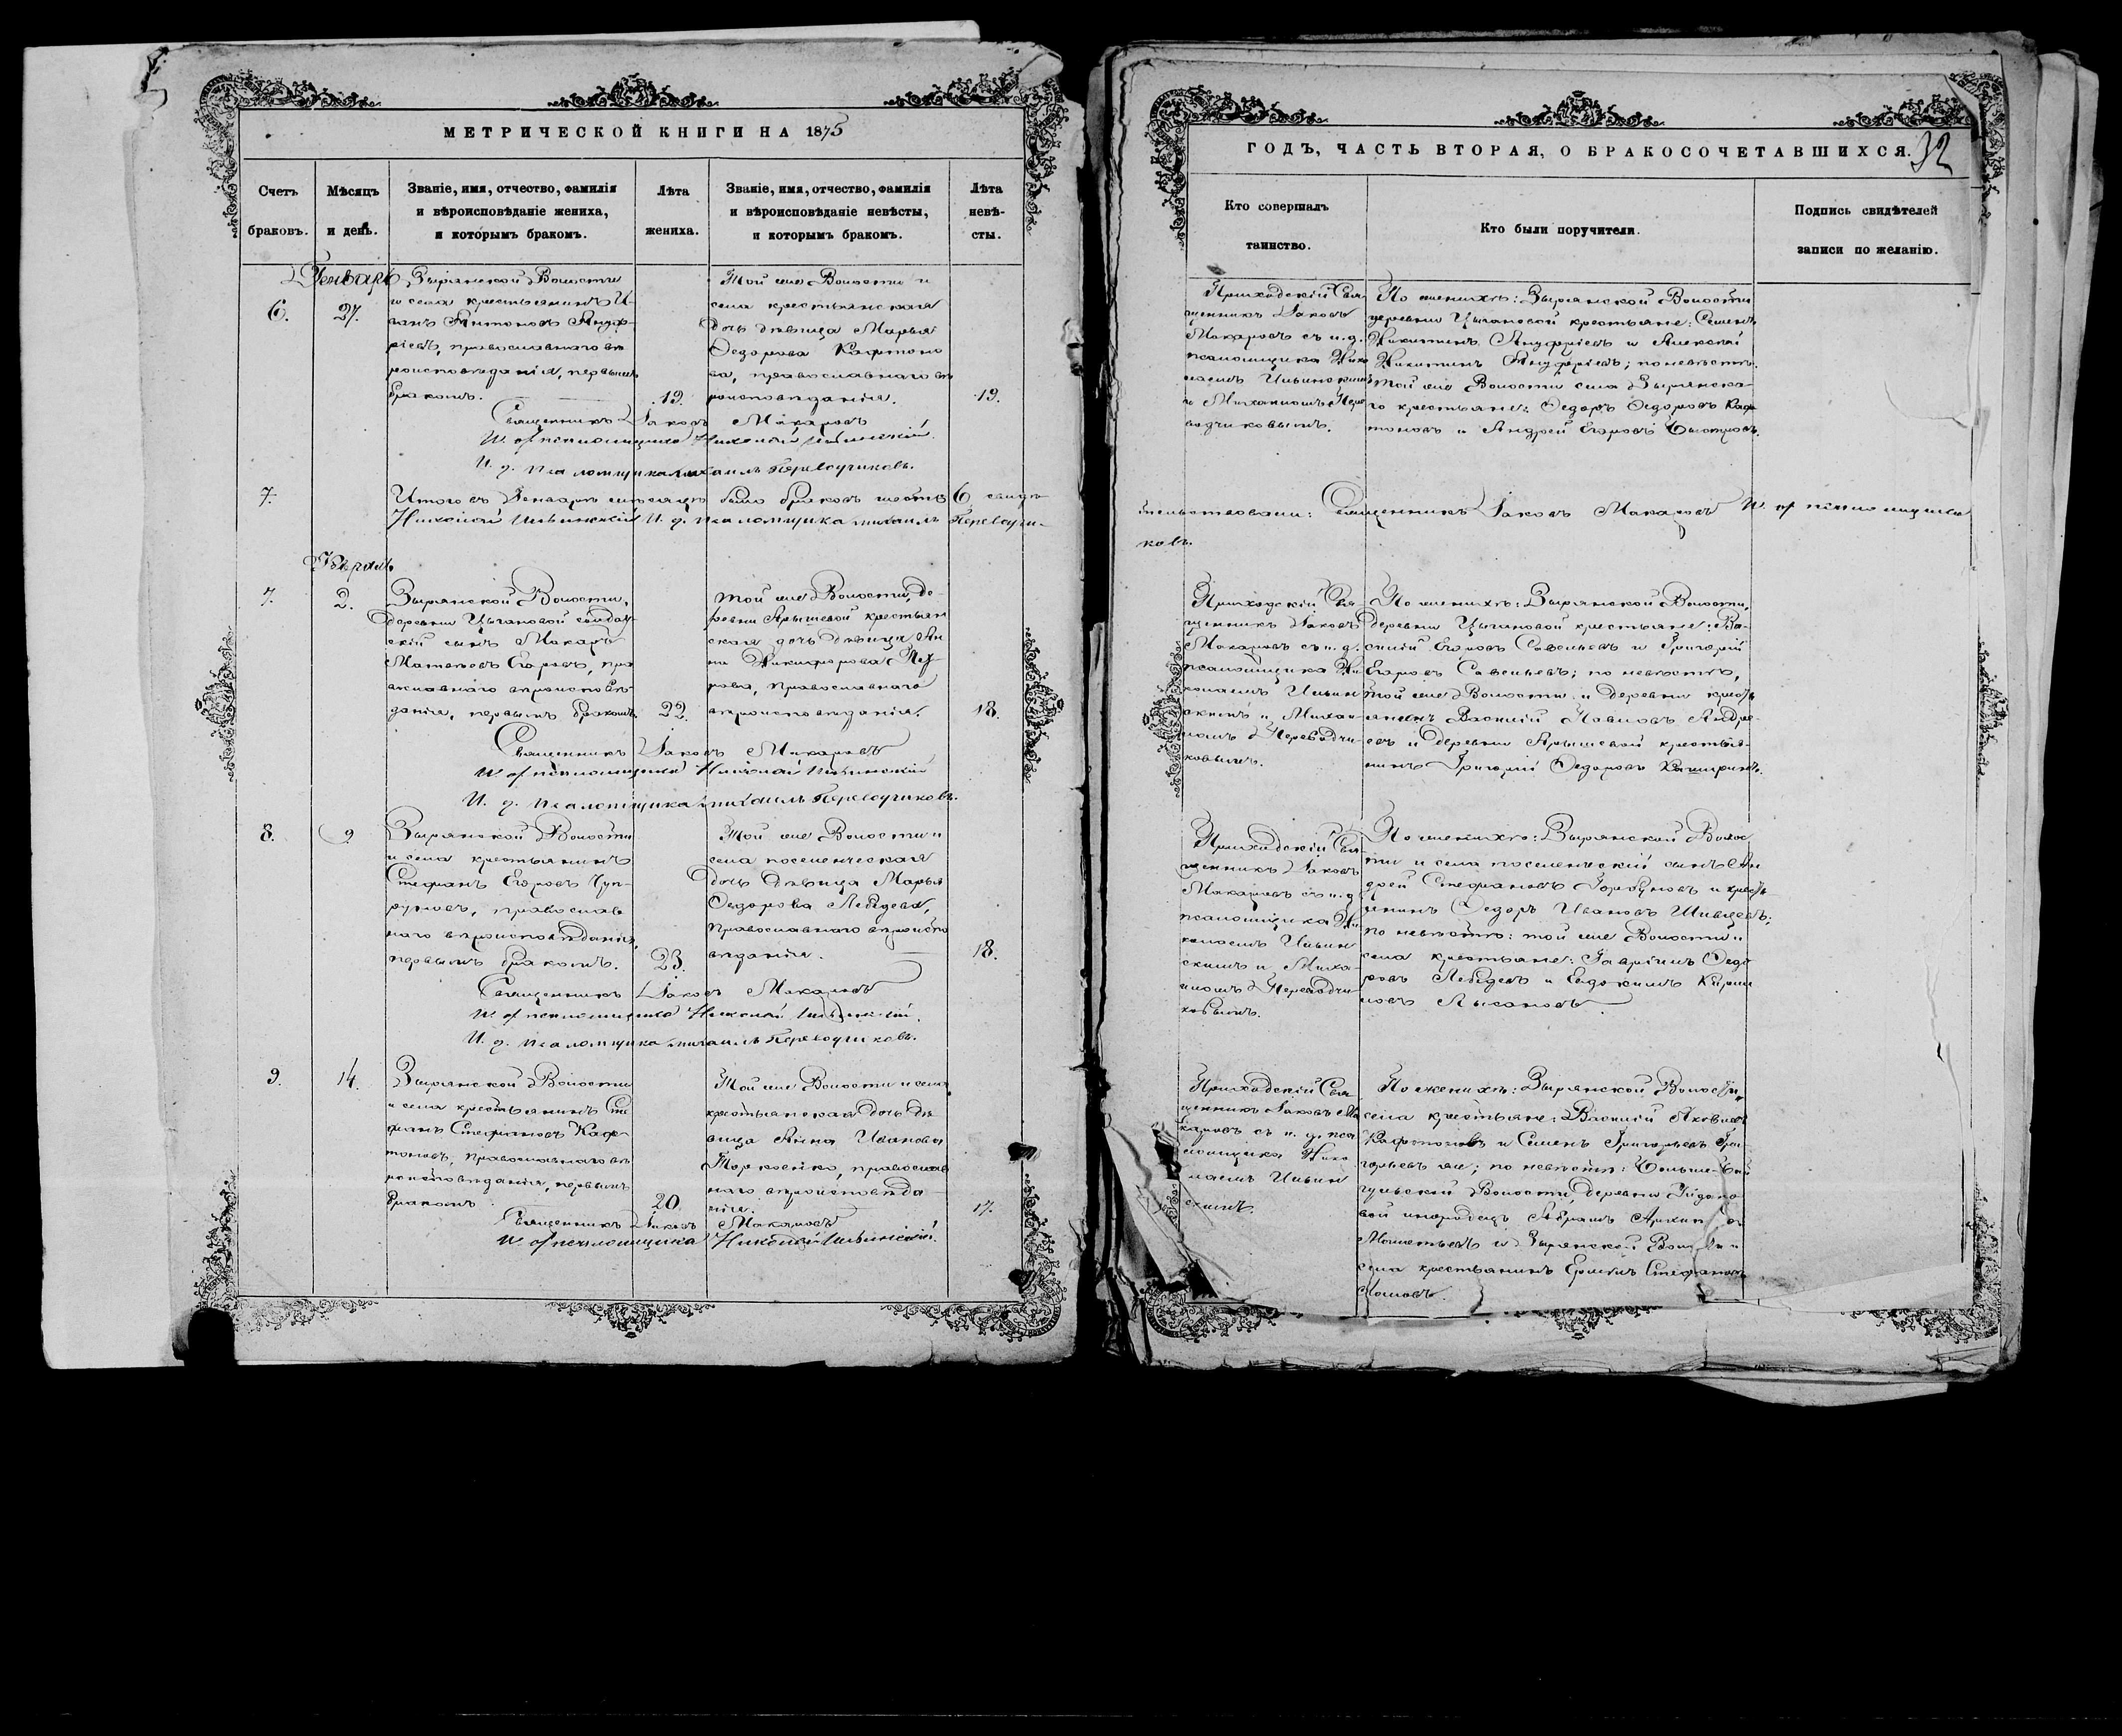 МЕТРИЧЕСКОЙ КНИГИ НА 1875
Счетъ браковъ.
Мѣсяцъ и день.
Званіе, имя, отчество, фамилія
и вѣроисповѣданіе жениха,
и которымъ бракомъ.
Лѣта
жениха.
Званіе, имя, отчество, фамилія
и вѣроисповѣданіе невѣсты,
и которымъ бракомъ.
Лѣта
невѣ-
сты.
Генварь
6.
27.
Зырянской Волости
и села крестьянинъ И-
ванъ Антоновъ Ануф-
ріевъ, православнаго вѣ
роисповѣданія, первымъ
бракомъ.
19.
Той же Волости и
села крестьянская
дочь дѣвица Марья
Ѳедорова Кафтоно
ва, православнаго вѣ
роисповѣданія.
19.
Священникъ Іаковъ Макаровъ
И. д. псаломщика Николай Ильинскій.
И. д. псаломщика михаилъ Переводчиковъ.
7.
Итого въ Генварѣ мѣсяцѣ было браковъ шесть 6 свидѣ-
Николай Ильинскій И. д. псаломщика михаилъ Переводчи-
Февраль
7.
2.
Зырянской Волости,
деревни Цыгановой солдат
скій сынъ Макаръ
Матвѣевъ Егоровъ, пра
вославнаго вѣроисповѣ-
данія, первымъ бракомъ.
22.
Той же Волости, де-
ревни Арышевой крестьян
ская дочь дѣвица Ан
на Никифорова Пет-
рова, православнаго
вѣроисповѣданія.
18.
Священникъ Іаковъ Макаровъ
И. д. псаломщика Николай Ильинскій
И. д. псаломщика михаилъ Переводчиковъ.
8.
9
Зырянской Волости
и села крестьянинъ
Стефанъ Егоровъ Чуп-
руновъ, православ
наго вѣроисповѣданія,
первымъ бракомъ.
23.
Той же Волости и
села поселенческая
дочь дѣвица Марья
Ѳедорова Лебедева,
православнаго вѣроиспо
вѣданія.
18.
Священникъ Іаковъ Макаровъ
И. д. псаломщика Николай Ильинскій.
И. д. псаломщика михаилъ Переводчиковъ.
9.
14.
Зырянской Волости
и села крестьянинъ Сте
фанъ Стефановъ Каф-
тоновъ, православнаго вѣ
роисповѣданія, первымъ
бракомъ.
20.
Той же Волости и села
крестьянская дочь дѣ
вица Анна Иванова
православ
наго вѣроисповѣда
нія.
17.
Священникъ Іаковъ Макаровъ
И. д. псаломщика Николай Ильинскій.
ГОДЪ, ЧАСТЬ ВТОРАЯ, О БРАКОСОЧЕТАВШИХСЯ. 32
Кто совершалъ
таинство.
Кто были поручители.
Подпись свидѣтелей
записи по желанію.
Приходскій Свя-
щенникъ Іаковъ
Макаровъ съ и. д.
псаломщика Нико
лаемъ Ильинскимъ
и Михаиломъ Пере
водчиковымъ.
По женихѣ: Зырянской Волости
деревни Цыгановой крестьяне: Семенъ
Никитинъ Ануфріевъ и Алексѣй
Никитинъ Ануфріевъ; по невѣстѣ:
той же Волости села Зырянска-
го крестьяне: Ѳедоръ Ѳедоровъ Каф
тоновъ и Андрей Егоровъ Быстровъ.
тельствовали: Священникъ Іаковъ Макаровъ И. д. псаломщика
ковъ.
Приходскій Свя
щенникъ Іаковъ
Макаровъ съ и. д.
псаломщика Ни
колаемъ Ильин
скимъ и Михаи
ломъ Переводчи-
ковымъ.
По женихѣ: Зырянской Волости,
деревни Цыгановой крестьяне: Ва-
силій Егоровъ Савельевъ и Григорій
Егоровъ Савельевъ; по невѣстѣ,
той же Волости и деревни кресть
янинъ Василій Павловъ Андре-
евъ и деревни Арышевой крестья-
нинъ Григорій Ѳедоровъ Каширинъ.
Приходскій Свя-
щенникъ Іаковъ
Макаровъ съ и. д.
псаломщика Ни
колаемъ Ильин
скимъ и Миха-
иломъ Переводчи-
ковымъ.
По женихѣ: Зырянской Волос
ти и села поселенческій сынъ Ан
дрей Стефановъ Горбуновъ и кресть
янинъ Ѳедоръ Ивановъ
по невѣстѣ: той же Волости и
села крестьяне: Гавріилъ Ѳедо
ровъ Лебедевъ и Евдокимъ Кирил
ловъ Лысановъ.
Приходскій Свя
щенникъ Іаковъ Ма
каровъ съ и. д. пса
ломщика Нико
лаемъ Ильин
скимъ.
По женихѣ: Зырянской Волости
села крестьяне: Василій Яковлевъ
Кафтоновъ и Семенъ Григорьевъ Гри-
горьевъ же; по невѣстѣ:
Волости, деревни
инородецъ Абрамъ
и Зырянской Волости и
села крестьянинъ Ермилъ Стефановъ